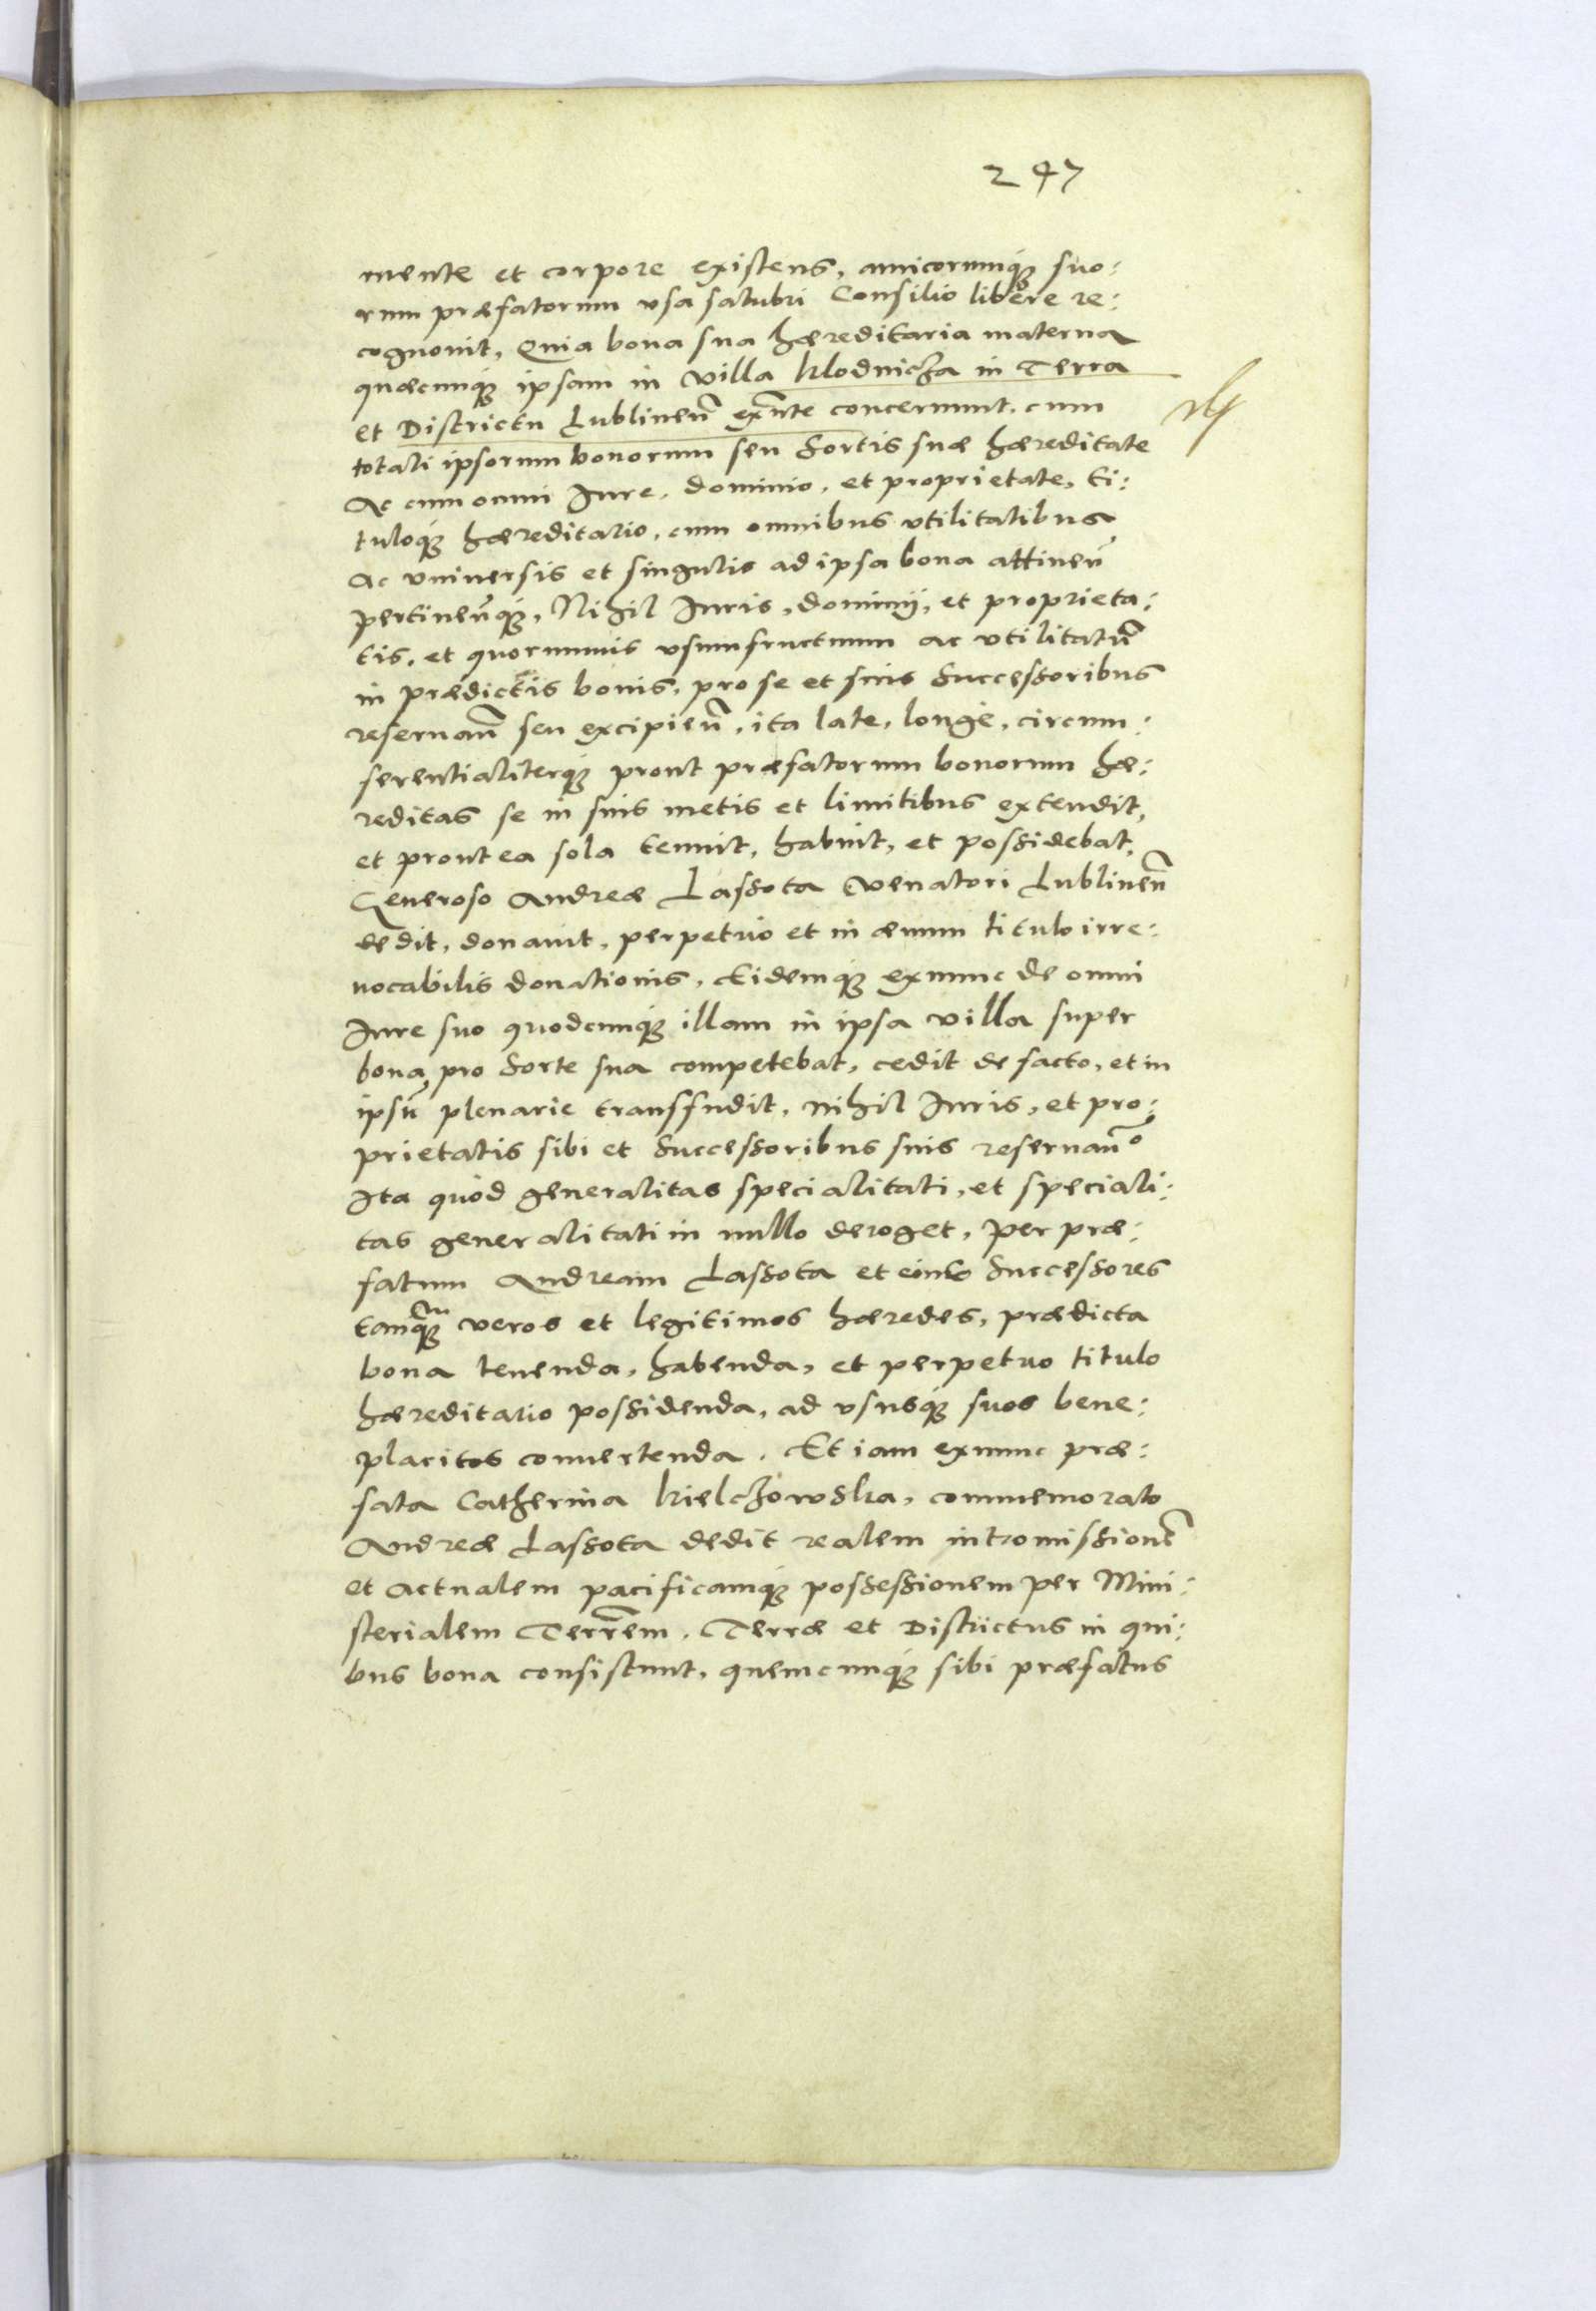 247
mente et corpore existens, amicorumq₃ suo:
rum præfatorum vsa salubri Consilio libere re:
cognouit, Quia bona sua hæreditaria materna
quæcunq₃ ipsam in villa Klodnicza in Terra
et Districtu Lublineñ exñte concernunt, cum
totali ipsorum bonorum seu Sortis suæ hæreditate
Ac cum omni Iure, dominio, et proprietate, ti:
tuloq₃ hæreditario, cum omnibus vtilitatibus
Ac vniuersis et singulis ad ipsa bona attineñ
pertineñq₃, Nihil Iuris, dominij, et proprieta:
tis, et quorumuis vsumfructuum ac vtilitatũ
in prædictis bonis, pro se et suis Successoribus
reseruañ seu excipieñ, ita late, longè, circum:
ferentialiterq₃ prout præfatorum bonorum hæ:
reditas se in suis metis et limitibus extendit,
et prout ea sola tenuit, habuit, et possidebat,
Generoso Andreæ Lassota Venatori Lublineñ
dedit, donauit, perpetuo et in æuum titulo irre:
uocabilis donationis, Eidemq₃ exnunc de omni
Iure suo quodcunq₃ illam in ipsa villa super
bona, pro Sorte sua competebat, cedit de facto, et in
ipsũ plenarie transfudit, nihil Iuris, et pro:
prietatis sibi et Successoribus suis reseruañᵒ
Ita quòd generalitas specialitati, et speciali:
tas generalitati in nullo deroget, Per præ:
fatum Andream Lassota et eius Successores
tanq₃ᵐ veros et legitimos hæredes, prædicta
bona tenenda, habenda, et perpetuo titulo
hæreditario possidenda, ad vsusq₃ suos bene:
placitos conuertenda. Et iam exnunc præ:
fata Catherina Kielczowska, commemorato
Andreæ Lassota dedit realem intromissionẽ
et Actualem pacificamq₃ possessionem per Mini:
sterialem Terrẽm. Terræ et Districtus in qui:
bus bona consistunt, quemcunq₃ sibi præfatus